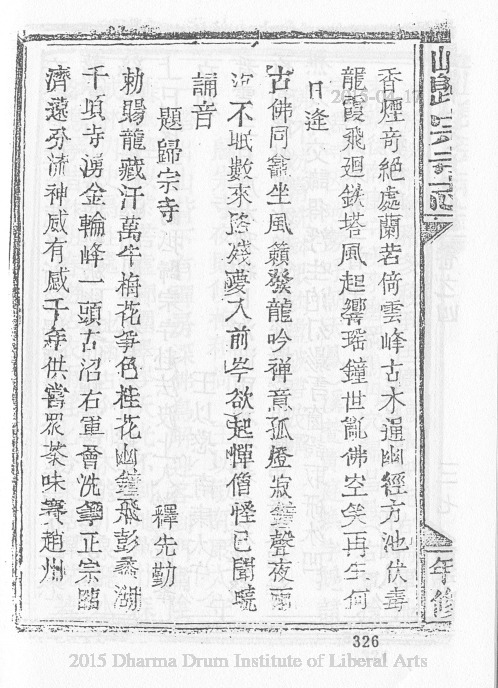 香煙奇絕處蘭若倚雲峰古木通幽經方池伏毒
龍霞飛廻鉄塔風起響瑤鐘世亂佛空矣再生何
日逢
古佛同龕坐風籟發龍吟禅意孤燈寂聲夜雨
沉不眠數來路殘憂入前岑欲起憚僧怪已聞曉
誦音
題歸宗寺
釋先勤
勅賜龍藏汗萬牛梅花爭色桂花幽鐘飛彭蠡湖
千頃寺湧金輪峰一頭古沼右軍曾洗正宗臨
濟遠分流神威有感千年供嘗眾茶味賽趙州
年修
326
2015 Dharma Drum Institute of Liberal Arts